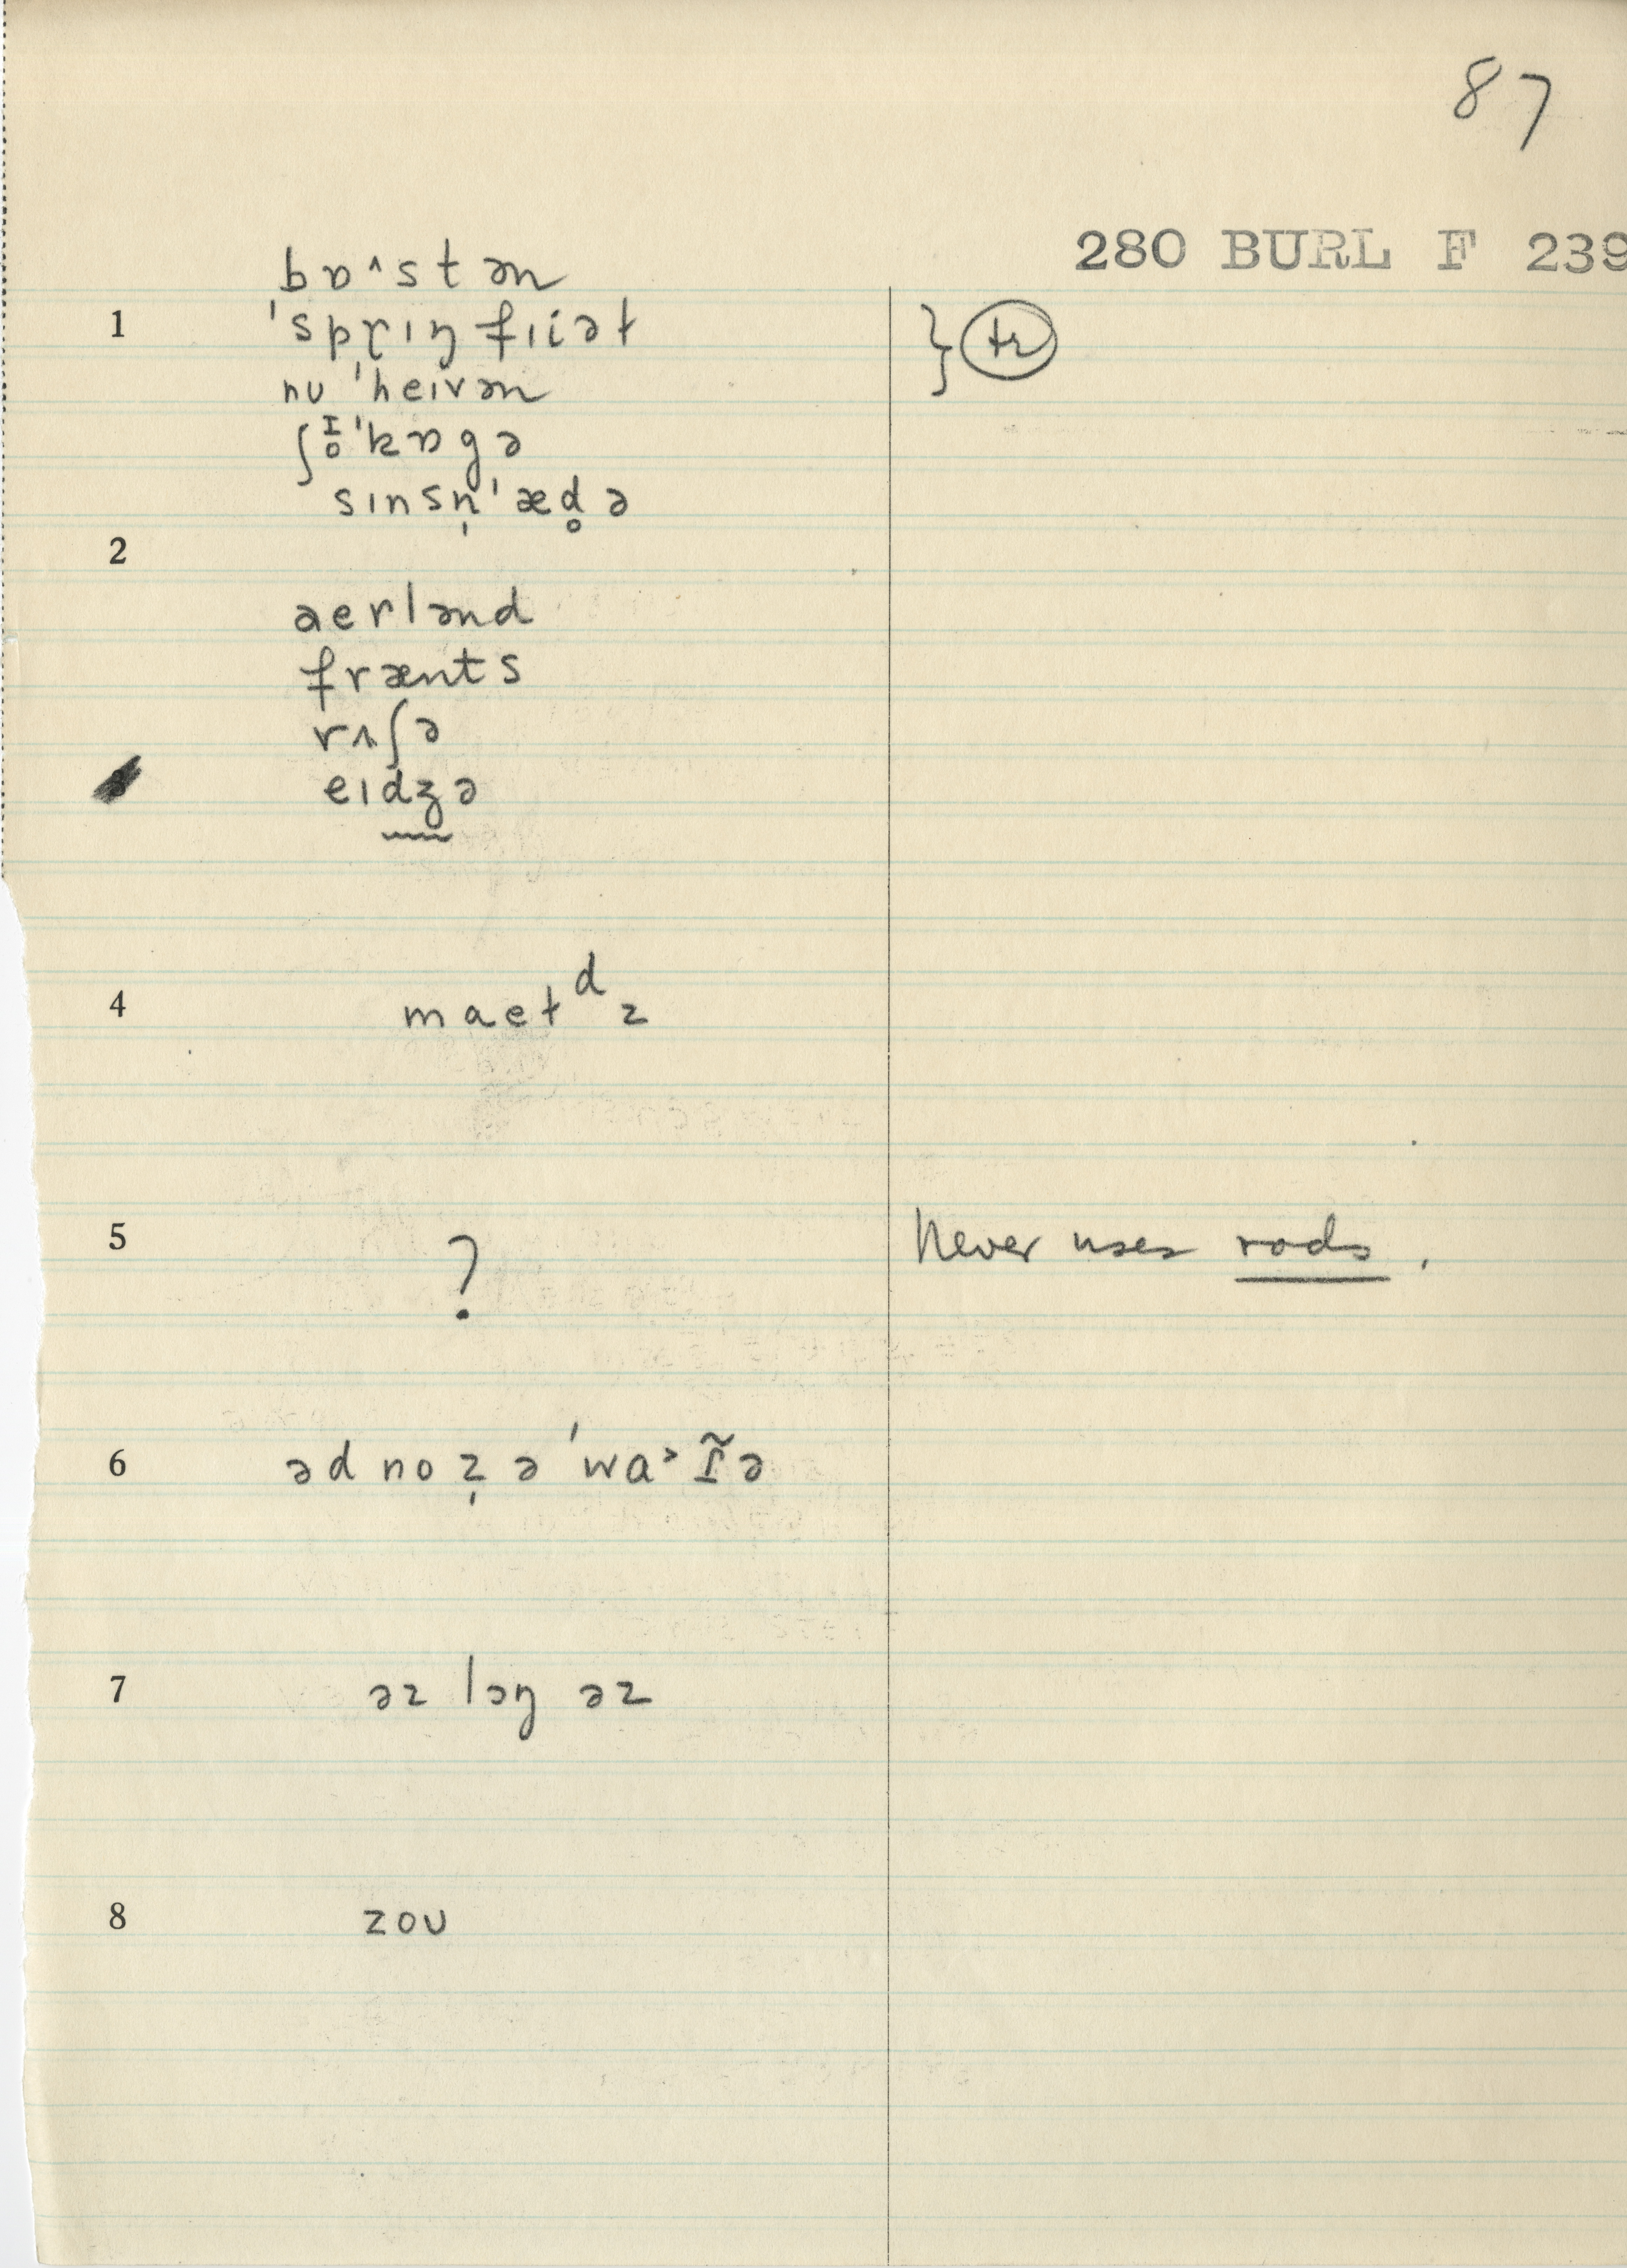 87
280 BURL F 239
bɒ˄stən
1 ˈsprɪŋfɪiəɫ } tr
nu ˈheɪvən
ʃɪ̥ˈkɒgə
sɪnsn̩ˈæd̥ə
2
aerlənd
frænts
rʌʃə
eɪdʒə
4 maeɫᵈz
5 ? Never uses rods.
6 ədnoz̩əˈwa˃ɪ̃ə
7 əz lɔŋ əz
8 zoʊ